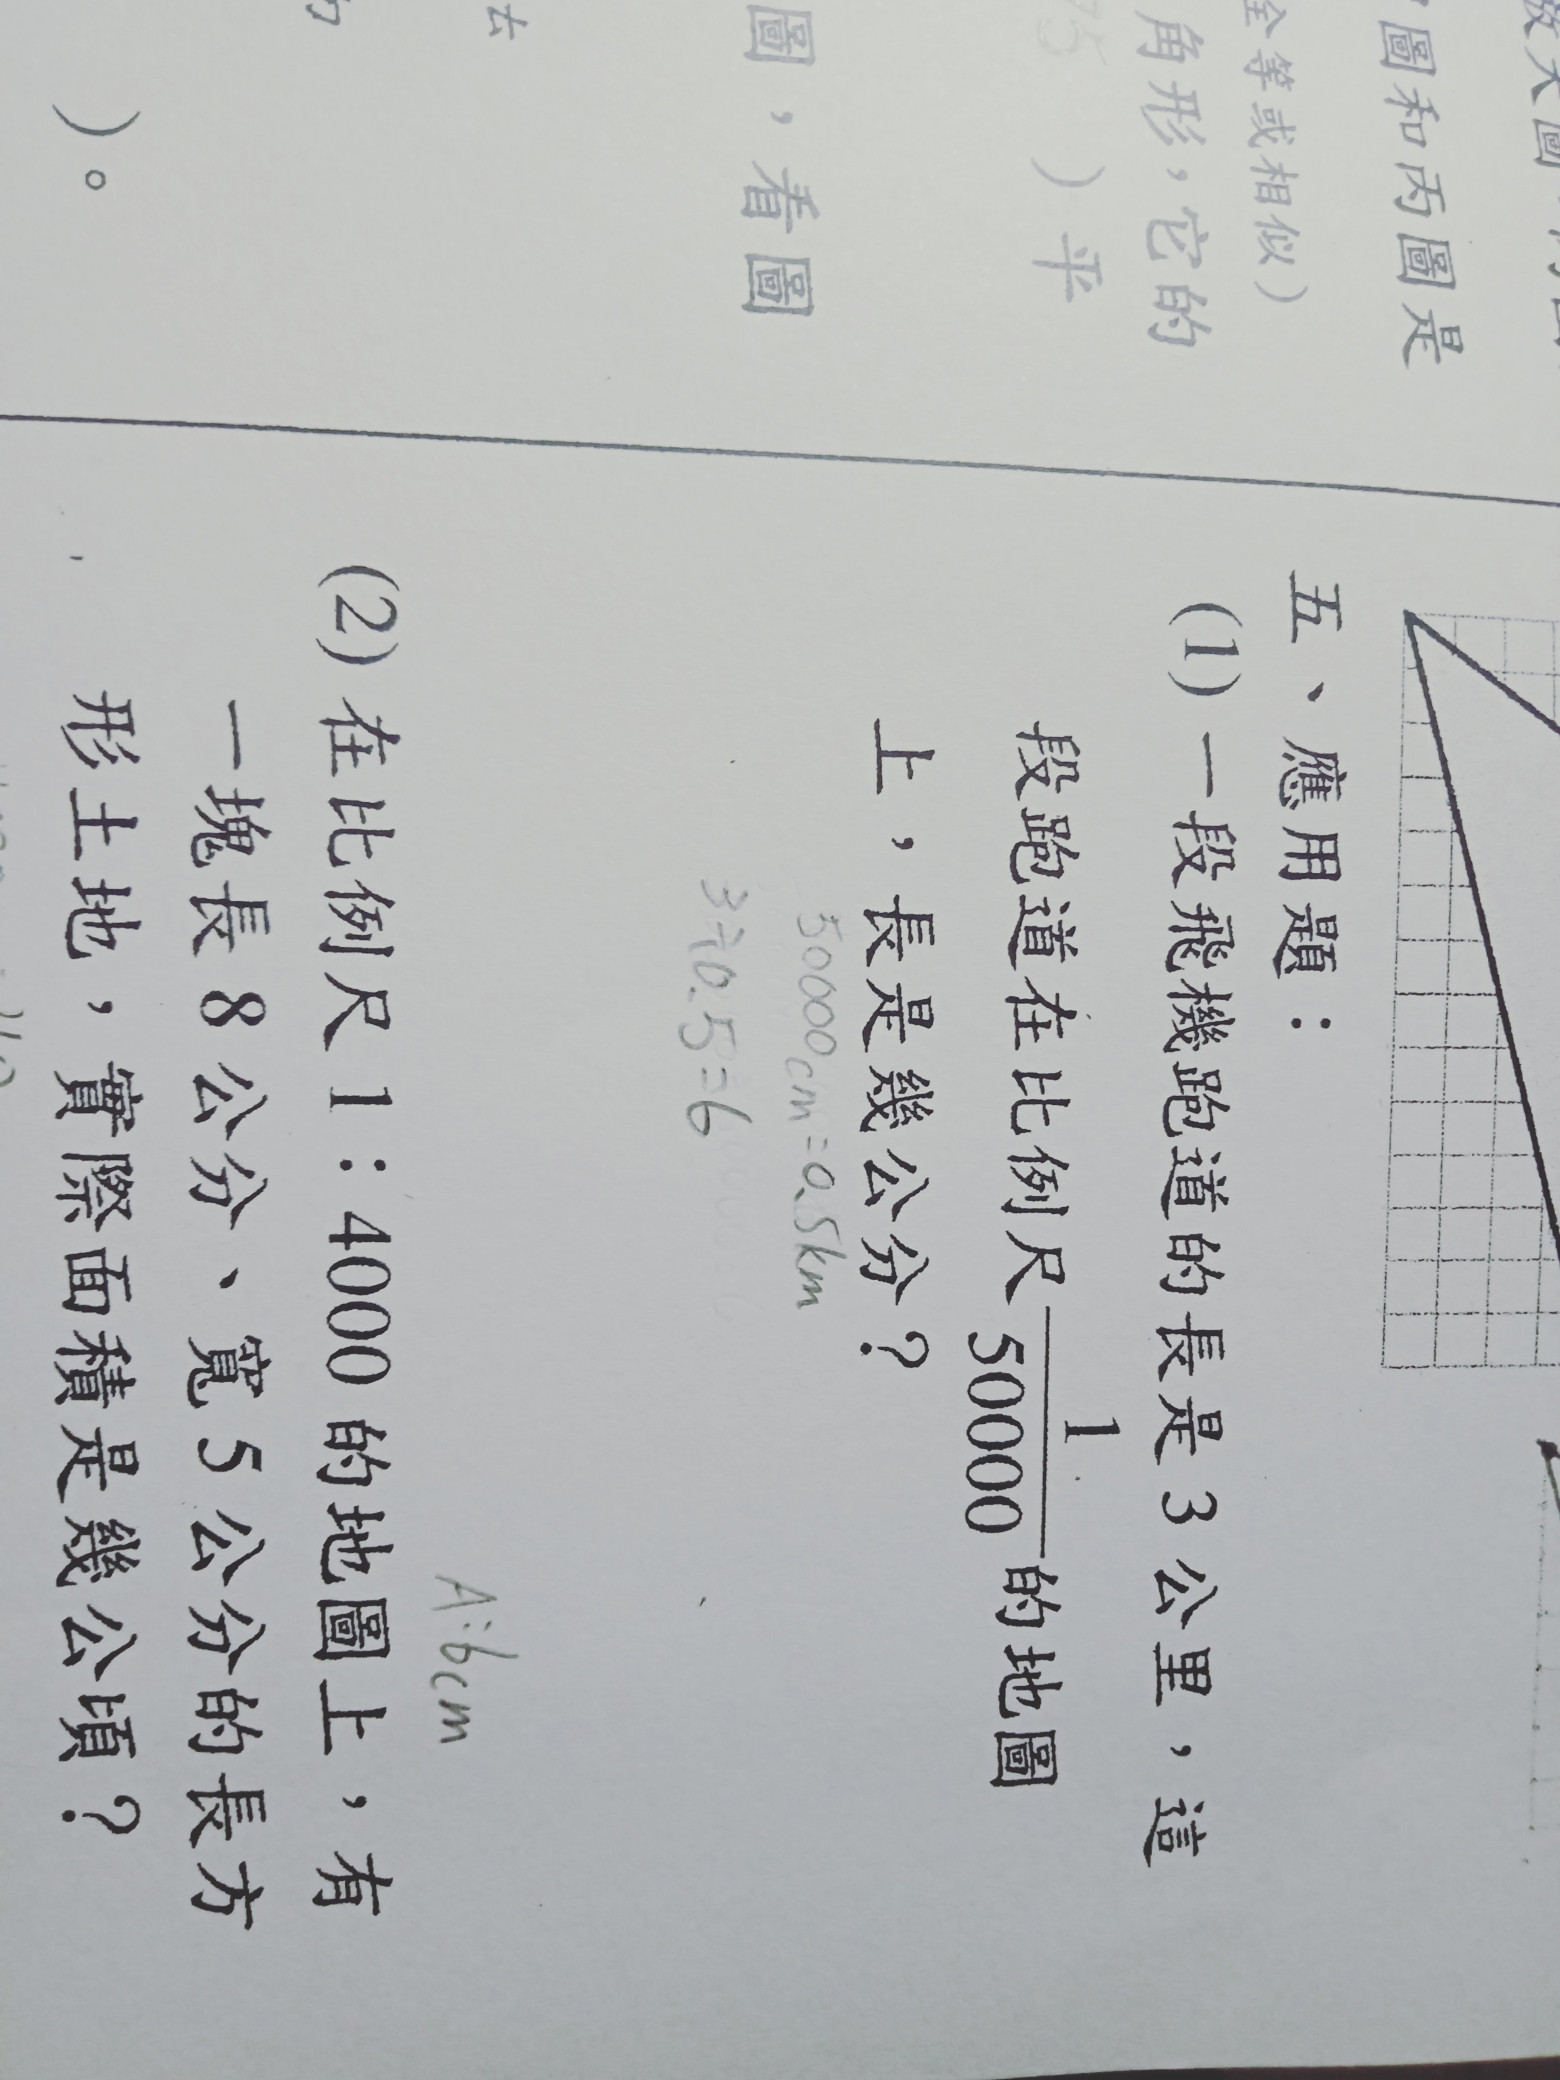 圖和丙圖是
全等或相似）
角形，它的
）平
圖，看圖
去
）。
五、應用題：
(1) 一段飛機跑道的長是 3 公里，這
段跑道在比例尺 1/50000 的地圖
上，長是幾公分？
50000cm=0.5km
3÷0.5=6
A:6cm
(2) 在比例尺 1：4000 的地圖上，有
一塊長 8 公分、寬 5 公分的長方
形土地，實際面積是幾公頃？